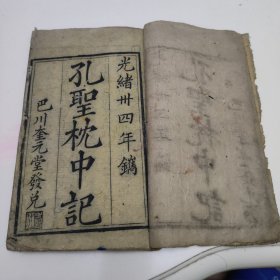 光緒卅四年鐫
孔聖枕中記
巴川奎元堂發兌